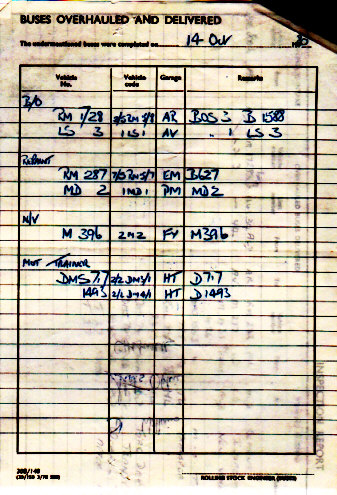 BUSES OVERHAULED AND DELIVERED
The undermentioned buses were completed on 14 Oct
Vehicle No. Vehicle code Garage Remarks
B/O
RM 1728 2/5RM5/8 AR BOS 3 B 1588
LS 3 1LS1 AV " 1 LS 3
REPAINT
RM 287 7/5RM5/7 EM B627
MD 2 1MD1 PM MD2
N/V
M 396 2M2 FY M396
MUT TRAINER
DMS 717 2/2DM3/1 HT D717
1493 2/2DM4/1 HT D1493
ROLLING STOCK ENGINEER (BUSES)